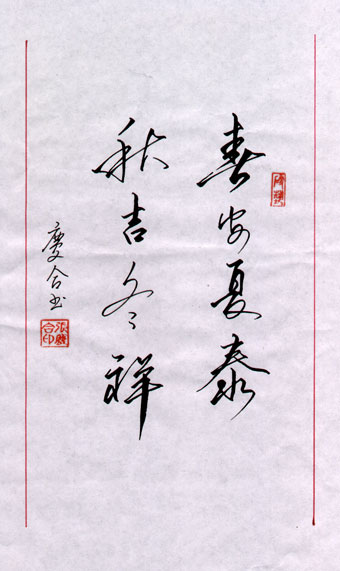 春安夏泰
秋吉冬祥
慶合书